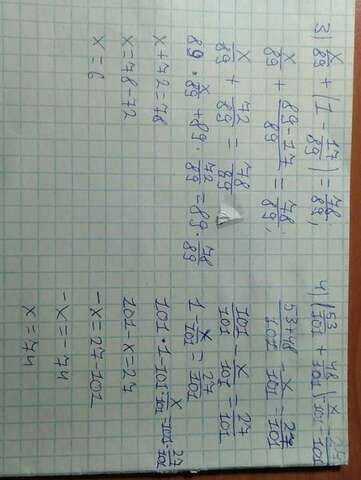 3) x/89 + (1 - 17/89) = 78/89,
x/89 + (89-17)/89 = 78/89,
x/89 + 72/89 = 78/89
89 · x/89 + 89 · 72/89 = 89 · 78/89
x + 72 = 78
x = 78 - 72
x = 6
4) (53/101 + 48/101) - x/101 = 27/101
(53+48)/101 - x/101 = 27/101
101/101 - x/101 = 27/101
1 - x/101 = 27/101
101 · 1 - 101 · x/101 = 101 · 27/101
101 - x = 27
-x = 27 - 101
-x = -74
x = 74